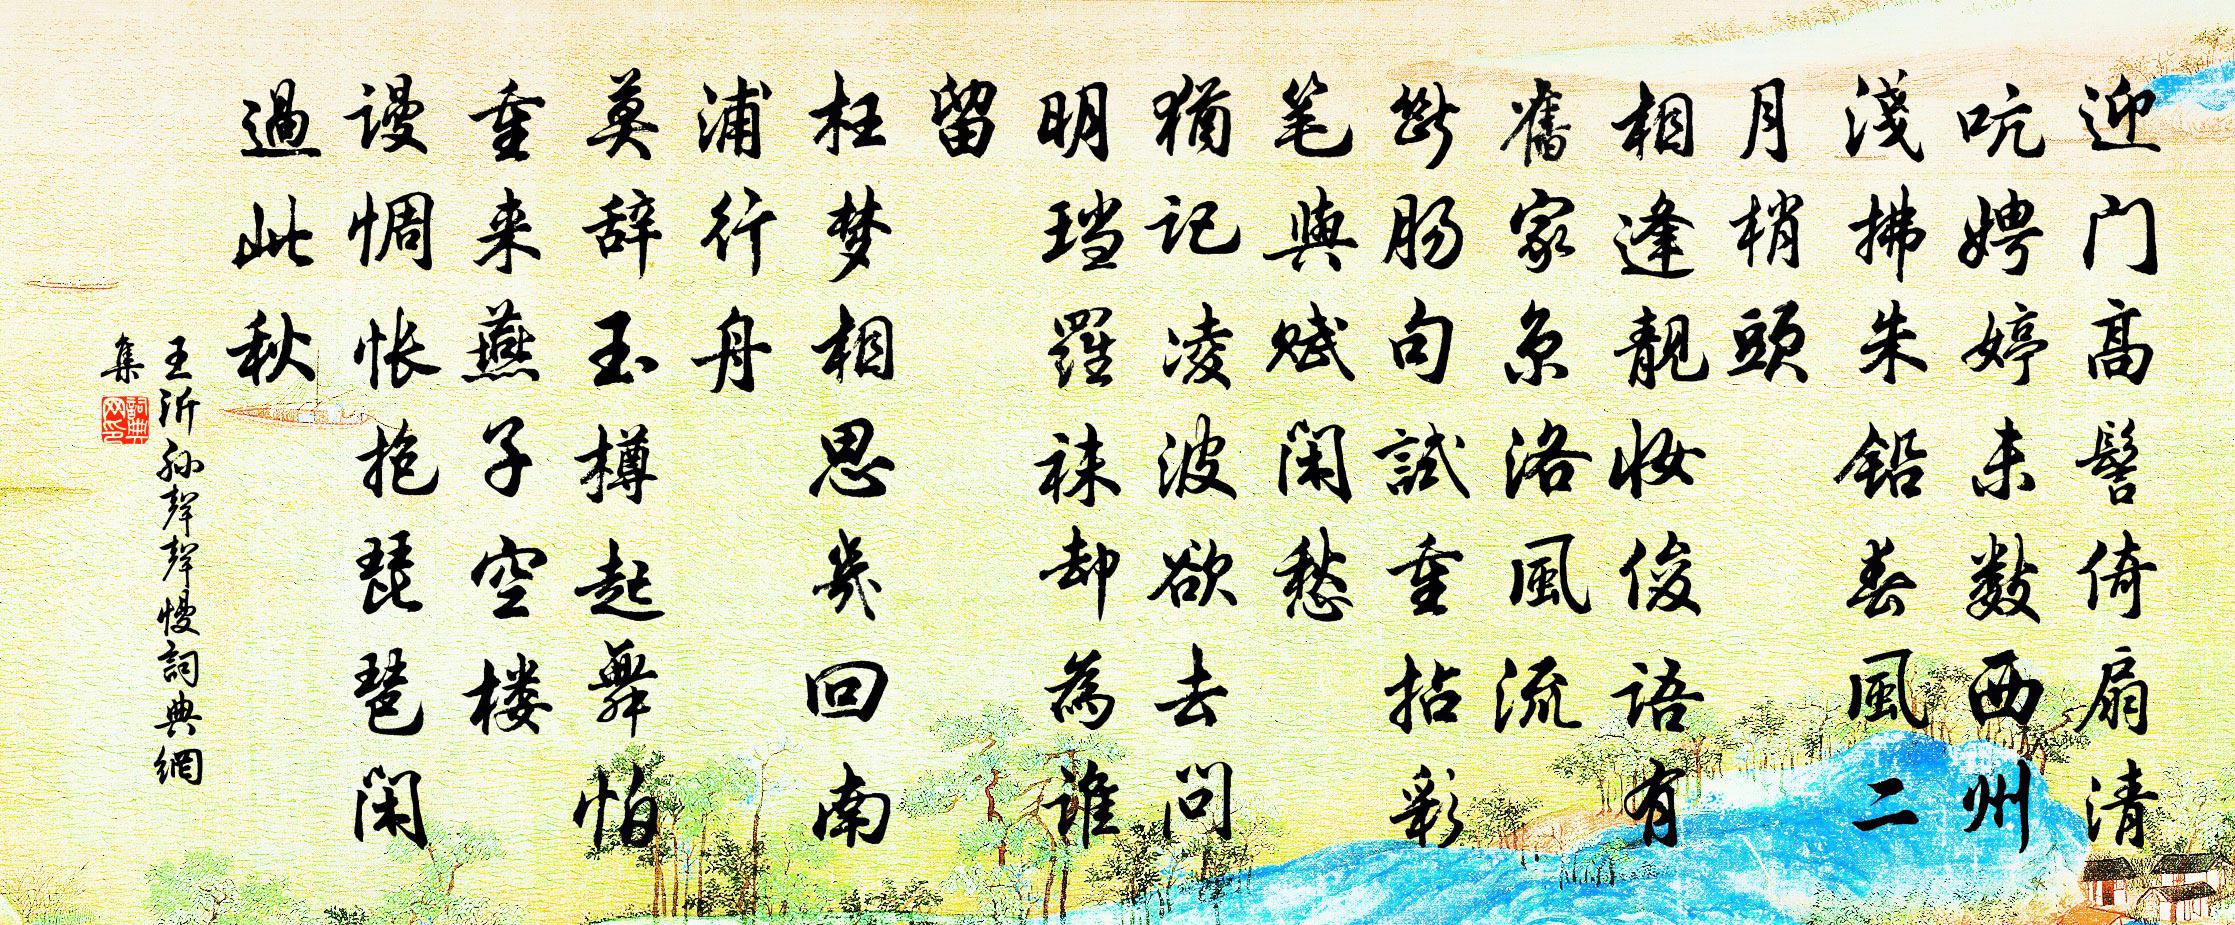 迎门高髻倚扇清
吭娉婷未数西州
淺拂朱铅春風二
月梢頭
相逢靓妆俊语有
舊家京洛風流
斷肠句試重拈彩
笔與赋闲愁
猶记凌波欲去问
明璫羅袜却為谁
留
枉梦相思幾回南
浦行舟
莫辞玉樽起舞怕
重来燕子空楼
谩惆怅抱琵琶闲
過此秋
王沂孙聲聲慢詞典網
集
詞典
网印